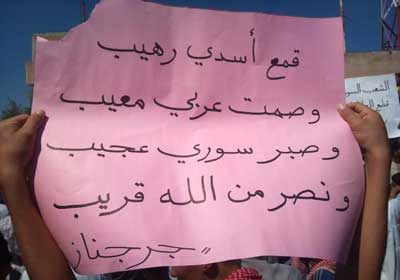 قمع أسدي رهيب
وصمت عربي معيب
وصبر سوري عجيب
ونصر من الله قريب
جرجناز
الشعب السو